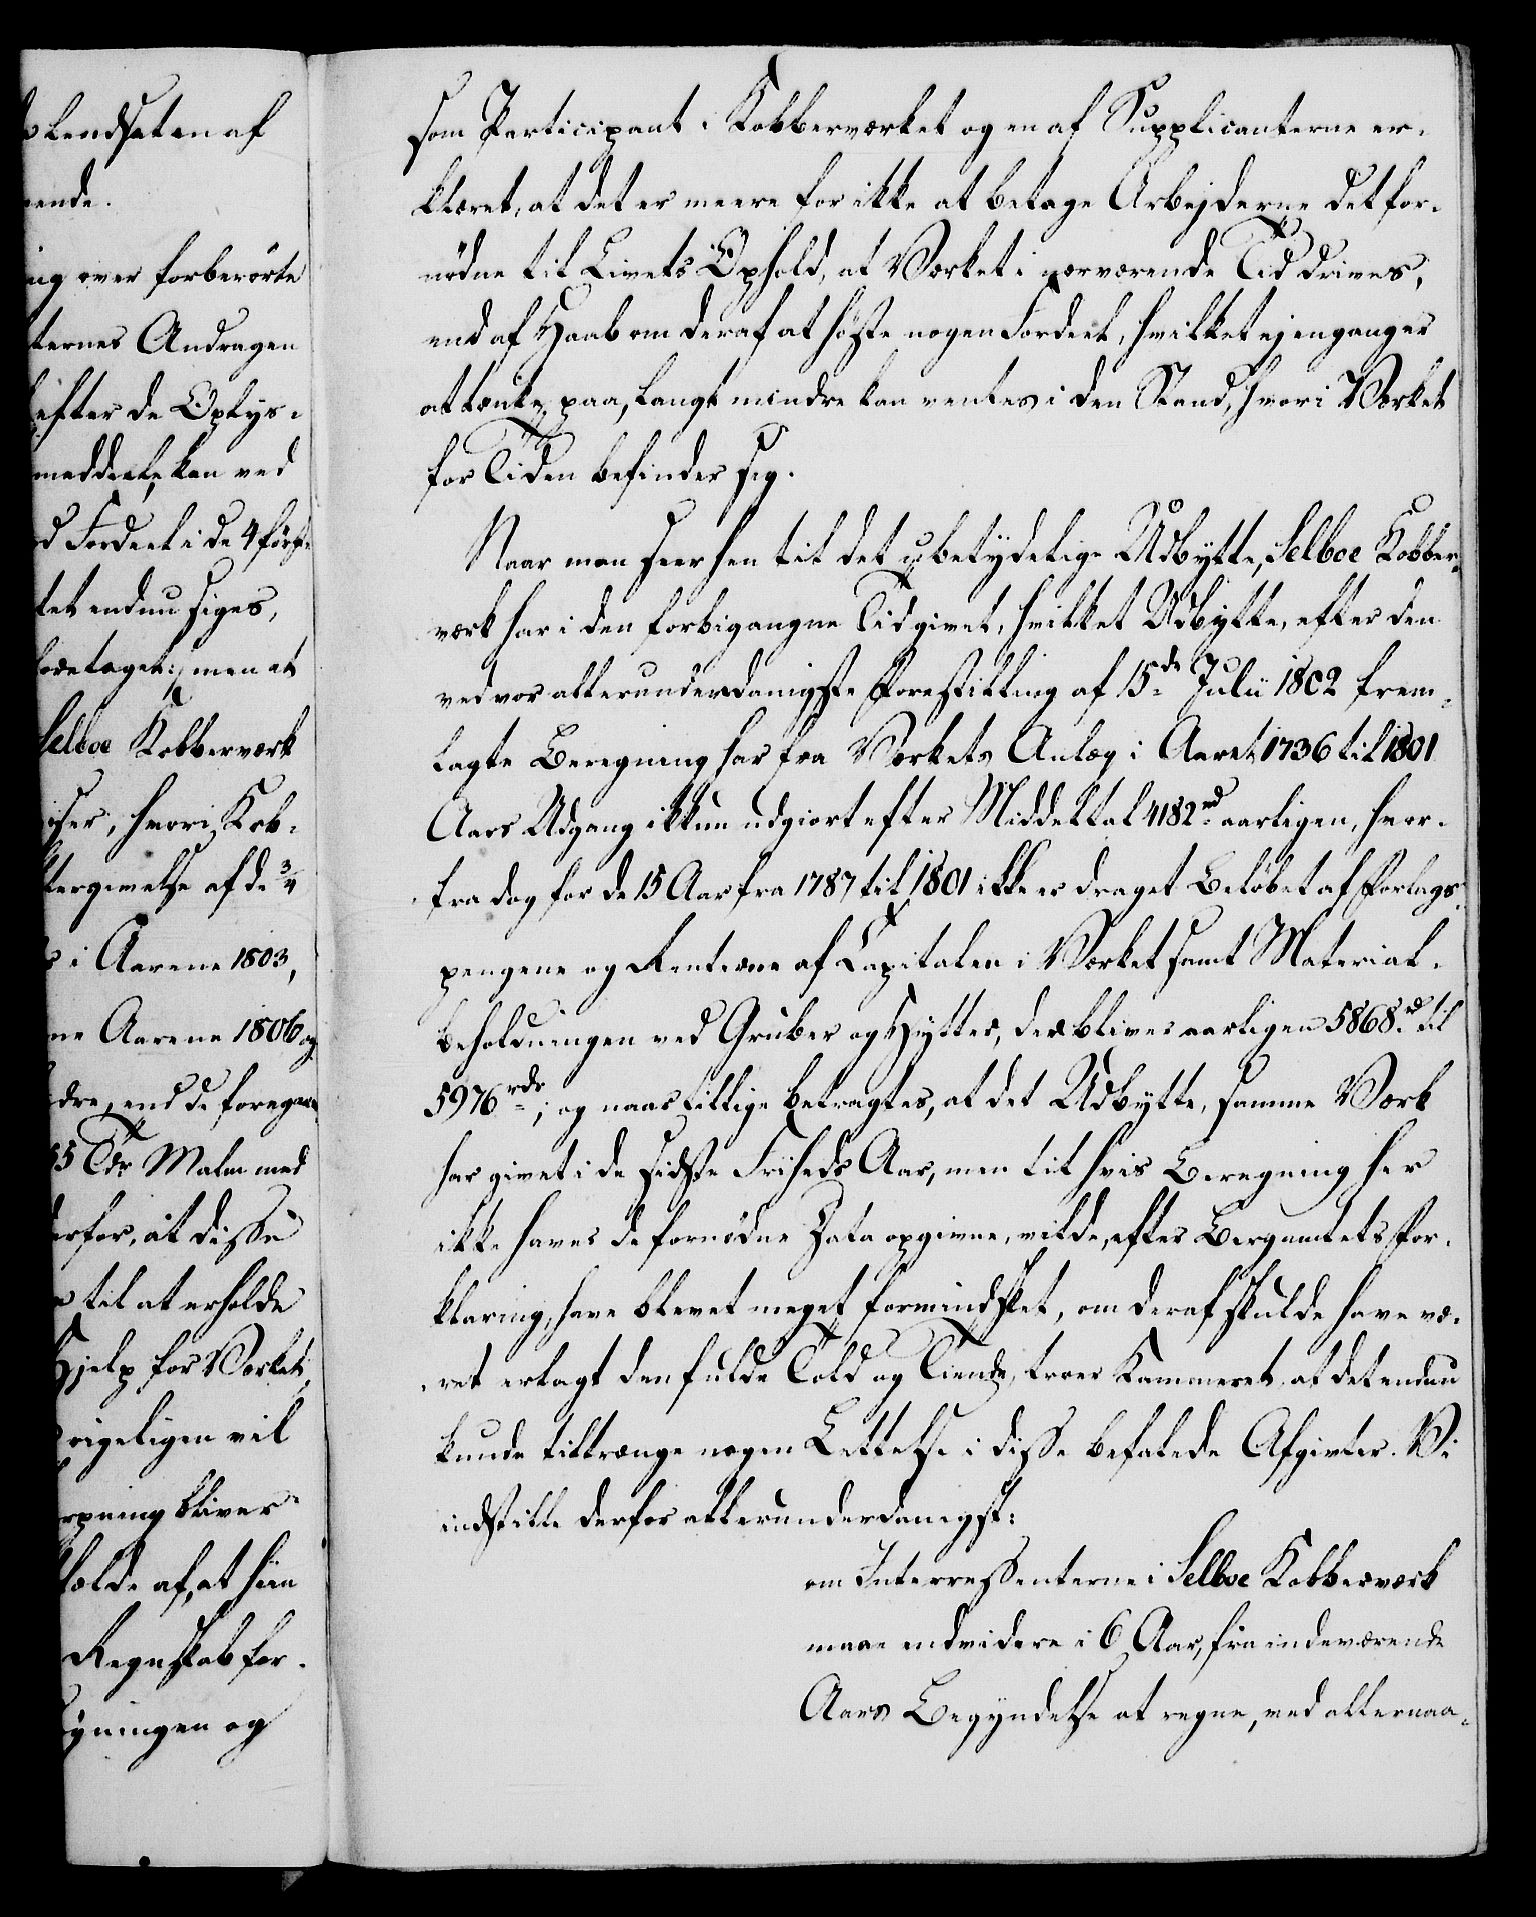 lendsaten af
ende.
ing over forberörte
ternes Andragen
efter de Oplys-
meddeele, kan ved
d Fordeel i de 4 förste
tet endnu siges,
foretaget:/ men at
Selboe Kobberværk
iser, hvori Kob-
tergivelse af de 3/4
s i Aarene 1803,
ne Aarene 1806 og
dre, end de foregaa
55 Tdr Malm med
erfor, at disse
til at erholde
Hjelp for Værket,
rigeligen vil
rpning bliver
holde af, at hiin
Regnskab for-
gningen og
som Participant i Kobberværket og en af Supplicanterne er-
klæret, at det er meere for ikke at betage Arbejderne det for-
nödne til Livets Ophold, at Værket i nærværende Tid drives,
end af Haab om deraf at höste nogen Fordeel, hvilket ej engang er
at tænke paa, langt mindre kan ventes i den Stand, hvori Værket
for Tiden befinder sig.
Naar man seer hen til det ubetydelige Udbytte, Selboe Kobber-
værk har i den forbigangne Tid givet, hvilket Udbytte, efter den
ved vor allerunderdanigste Forestilling af 15de Julii 1802 frem-
lagte Beregning har fra Værkets Anlæg i Aaret 1736 til 1801
Aars Udgang ikkun udgiort efter Middeltal 4182 rd aarligen, hvor-
fra dog for de 15 Aar fra 1787 til 1801 ikke er draget Belöbet af Forlags-
pengene og Renterne af Capitalen i Værket samt Material-
beholdningen ved Gruber og Hytter, der bliver aarligen 5868 rd til
5976 rdr; og naar tillige betragtes, at det Udbytte, samme Værk
har givet i de sidste Friheds Aar, men til hvis Beregning her
ikke haves de fornödne Data opgivne, vilde, efter Bergamtets For-
klaring, have blevet meget formindsket, om deraf skulde have væ-
ret erlagt den fulde Told og Tiende, troer Kammeret, at det endnu
kunde tiltrænge nogen Lettelse i disse befalede Afgivter. Vi
indstille derfor allerunderdanigst:
om Interressenterne i Selboe Kobberværk
maae endvidere i 6 Aar, fra indeværende
Aars Begyndelse at regne, ved allernaa-